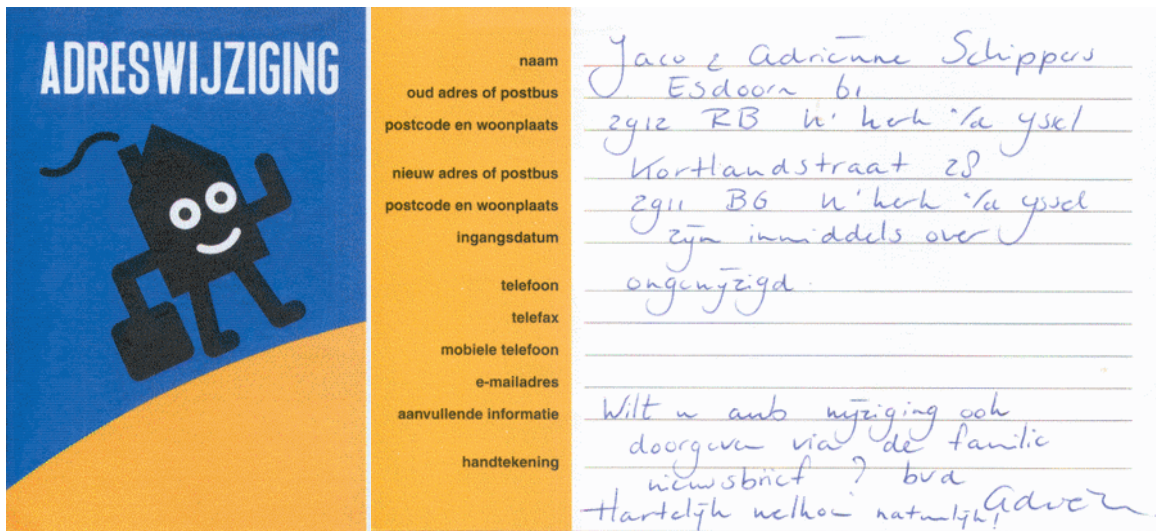 ADRESWIJZIGING
naam
oud adres of postbus
postcode en woonplaats
nieuw adres of postbus
postcode en woonplaats
ingangsdatum
telefoon
telefax
mobiele telefoon
e-mailadres
aanvullende informatie
handtekening
Jaco & Adriënne Schippers
Esdoorn 61
2912 RB N' kerk a/d yssel
Kortlandstraat 28
2911 BG N' kerk a/d yssel
zijn inmiddels over
ongewijzigd.
Wilt u aub wijziging ook
doorgeven via de familie
nieuwsbrief? bvd
Hartelijk welkom natuurlijk!